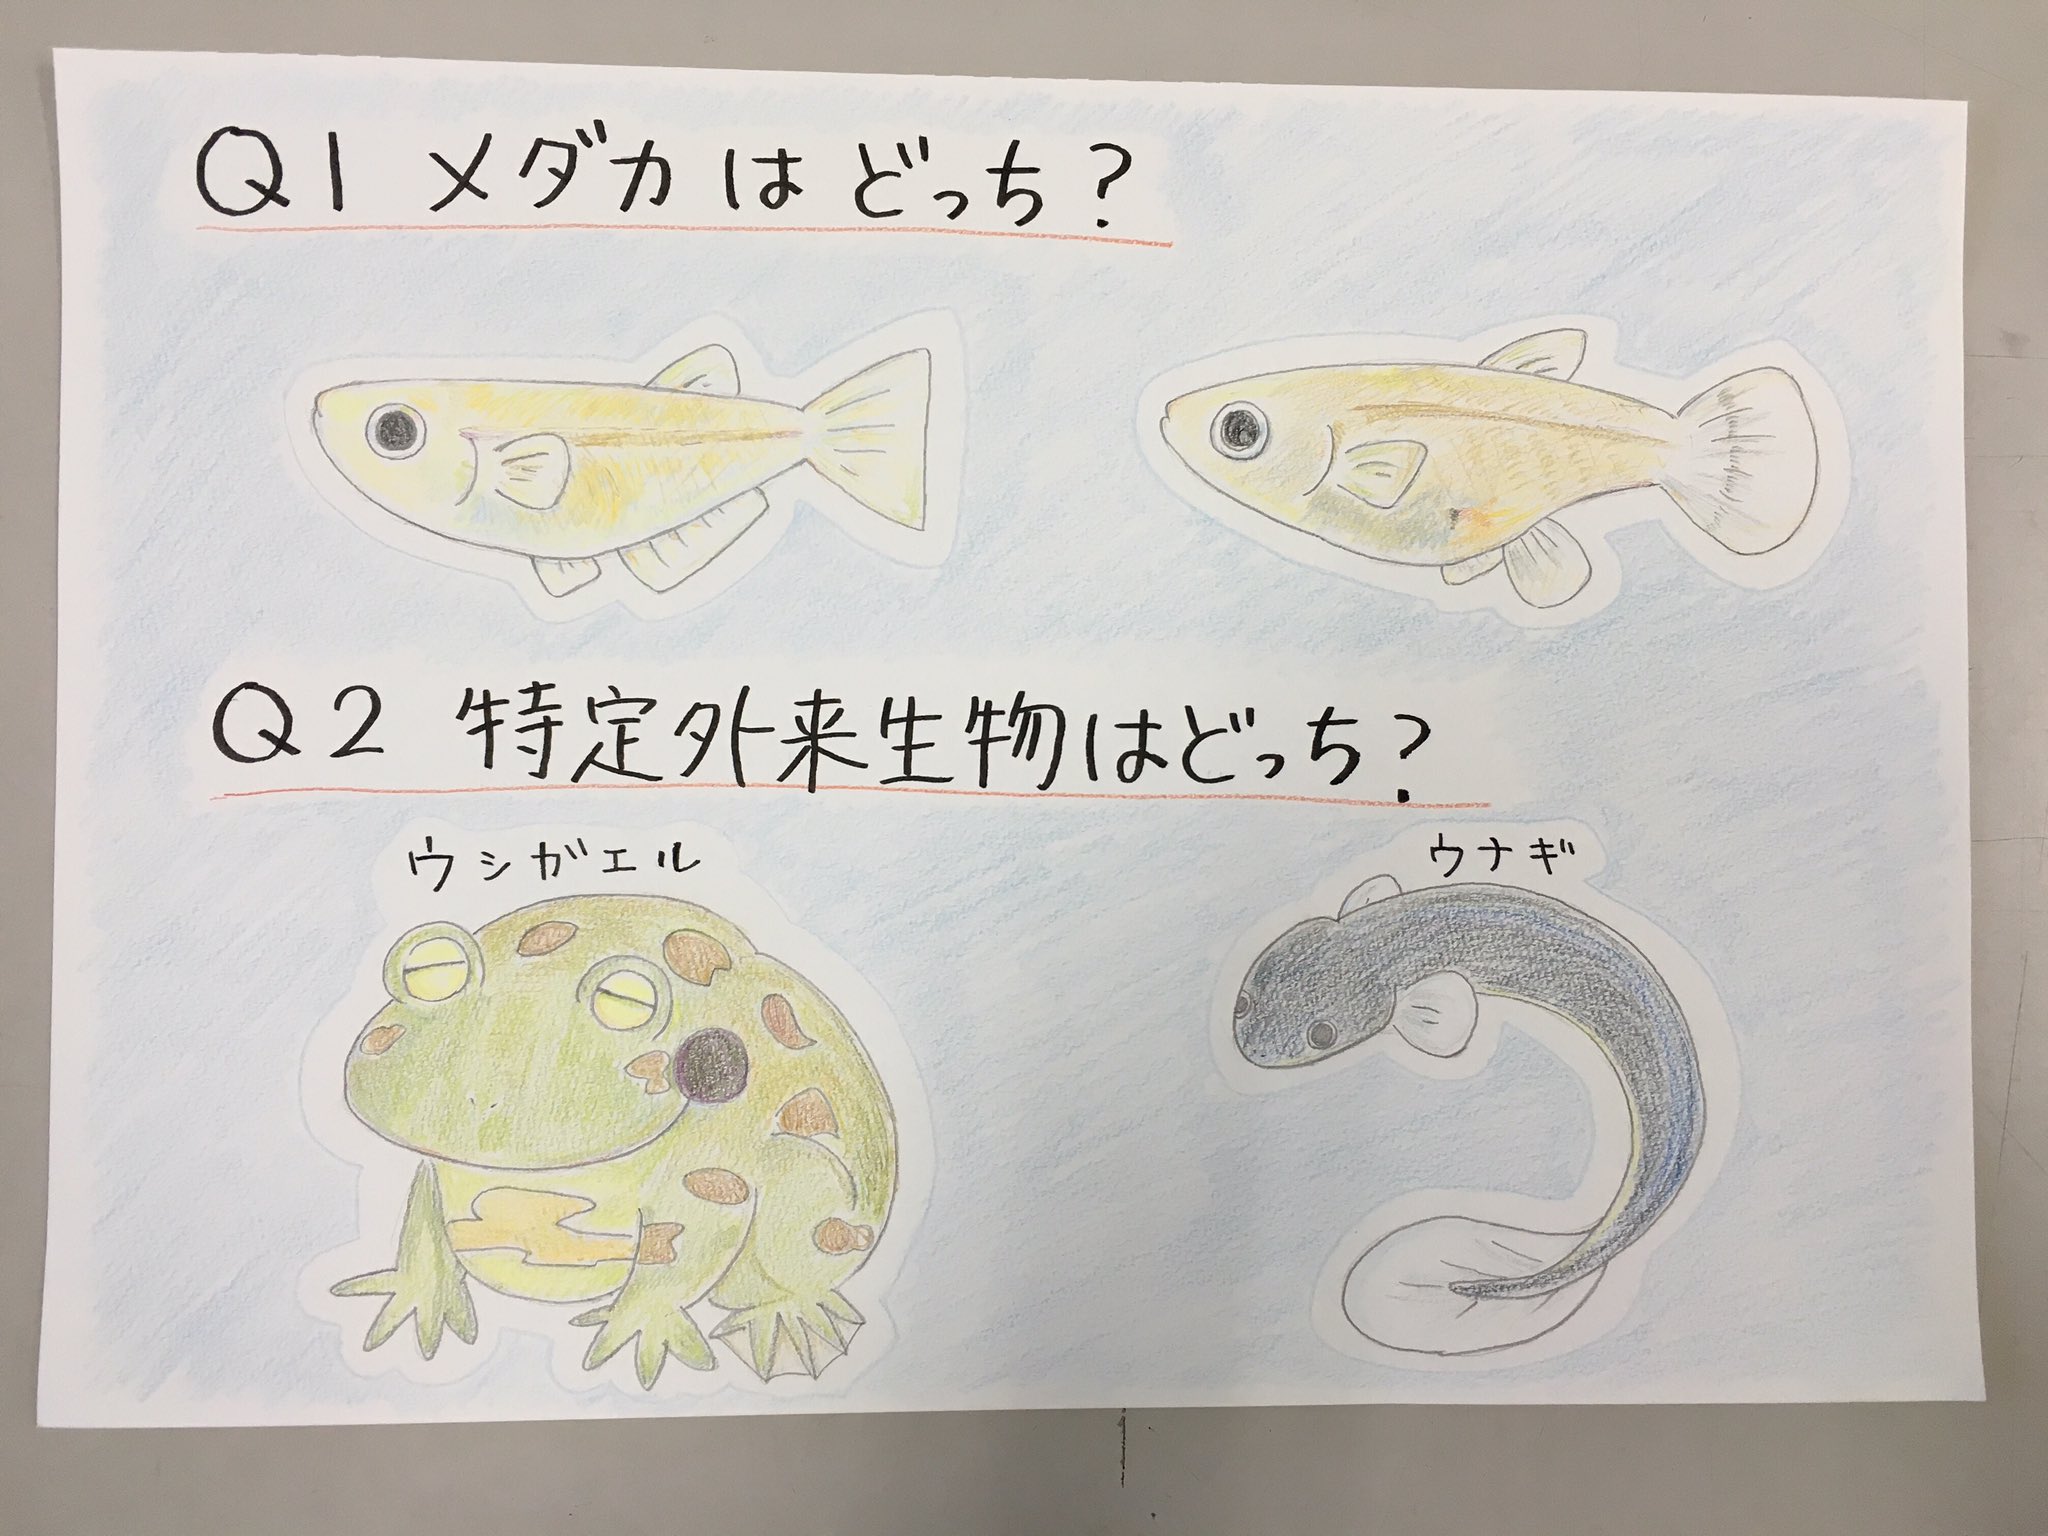 Q1 メダカはどっち?
Q2 特定外来生物はどっち?
ウシガエル
ウナギ